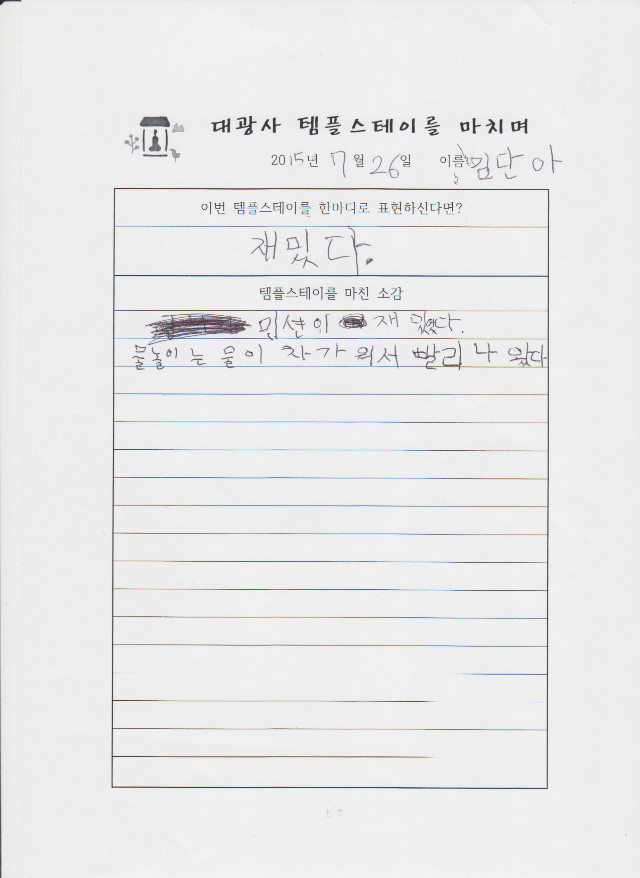 대광사 템플스테이를 마치며
2015년 7월 26일 이름: 김단아
이번 템플스테이를 한마디로 표현하신다면?
재밌다.
템플스테이를 마친 소감
미션이 재밌었다.
물놀이는 물이 차가워서 빨리 나왔다